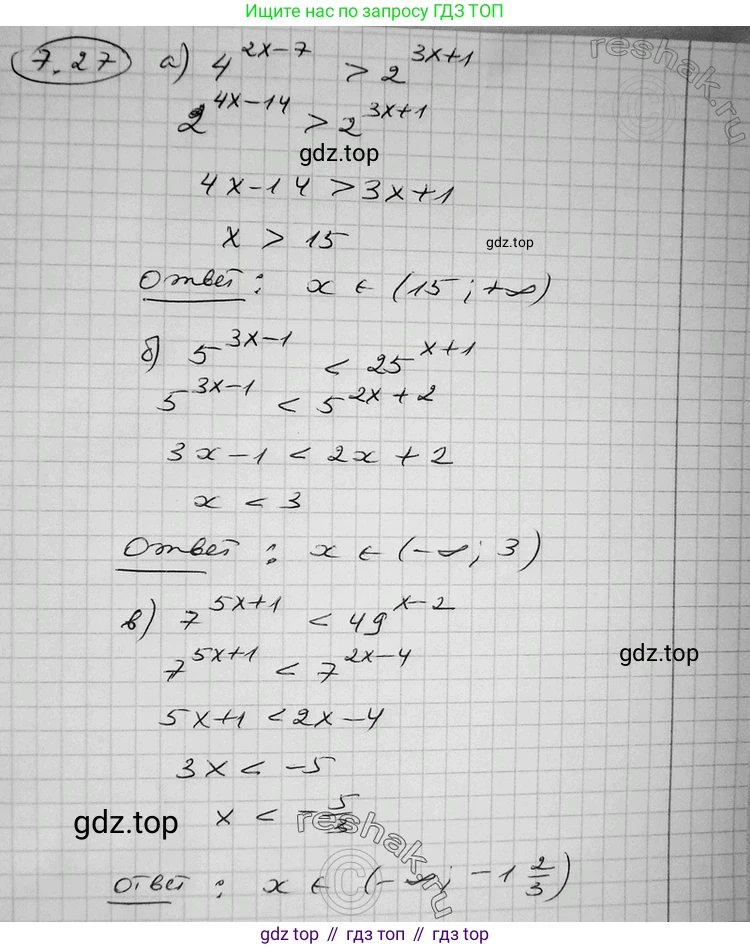 Ищите нас по запросу ГДЗ ТОП
7.27 а) 4^(2x-7) > 2^(3x+1)
reshak.ru
2^(4x-14) > 2^(3x+1)
gdz.top
4x-14 > 3x+1
x > 15
gdz.top
Ответ: x ∈ (15; +∞)
б) 5^(3x-1) < 25^(x+1)
5^(3x-1) < 5^(2x+2)
3x-1 < 2x+2
x < 3
Ответ: x ∈ (-∞; 3)
в) 7^(5x+1) < 49^(x-2)
7^(5x+1) < 7^(2x-4)
gdz.top
5x+1 < 2x-4
3x < -5
x < -5/3
gdz.top
reshak.ru
Ответ: x ∈ (-∞; -1 2/3)
gdz.top // gdz.top // gdz.top